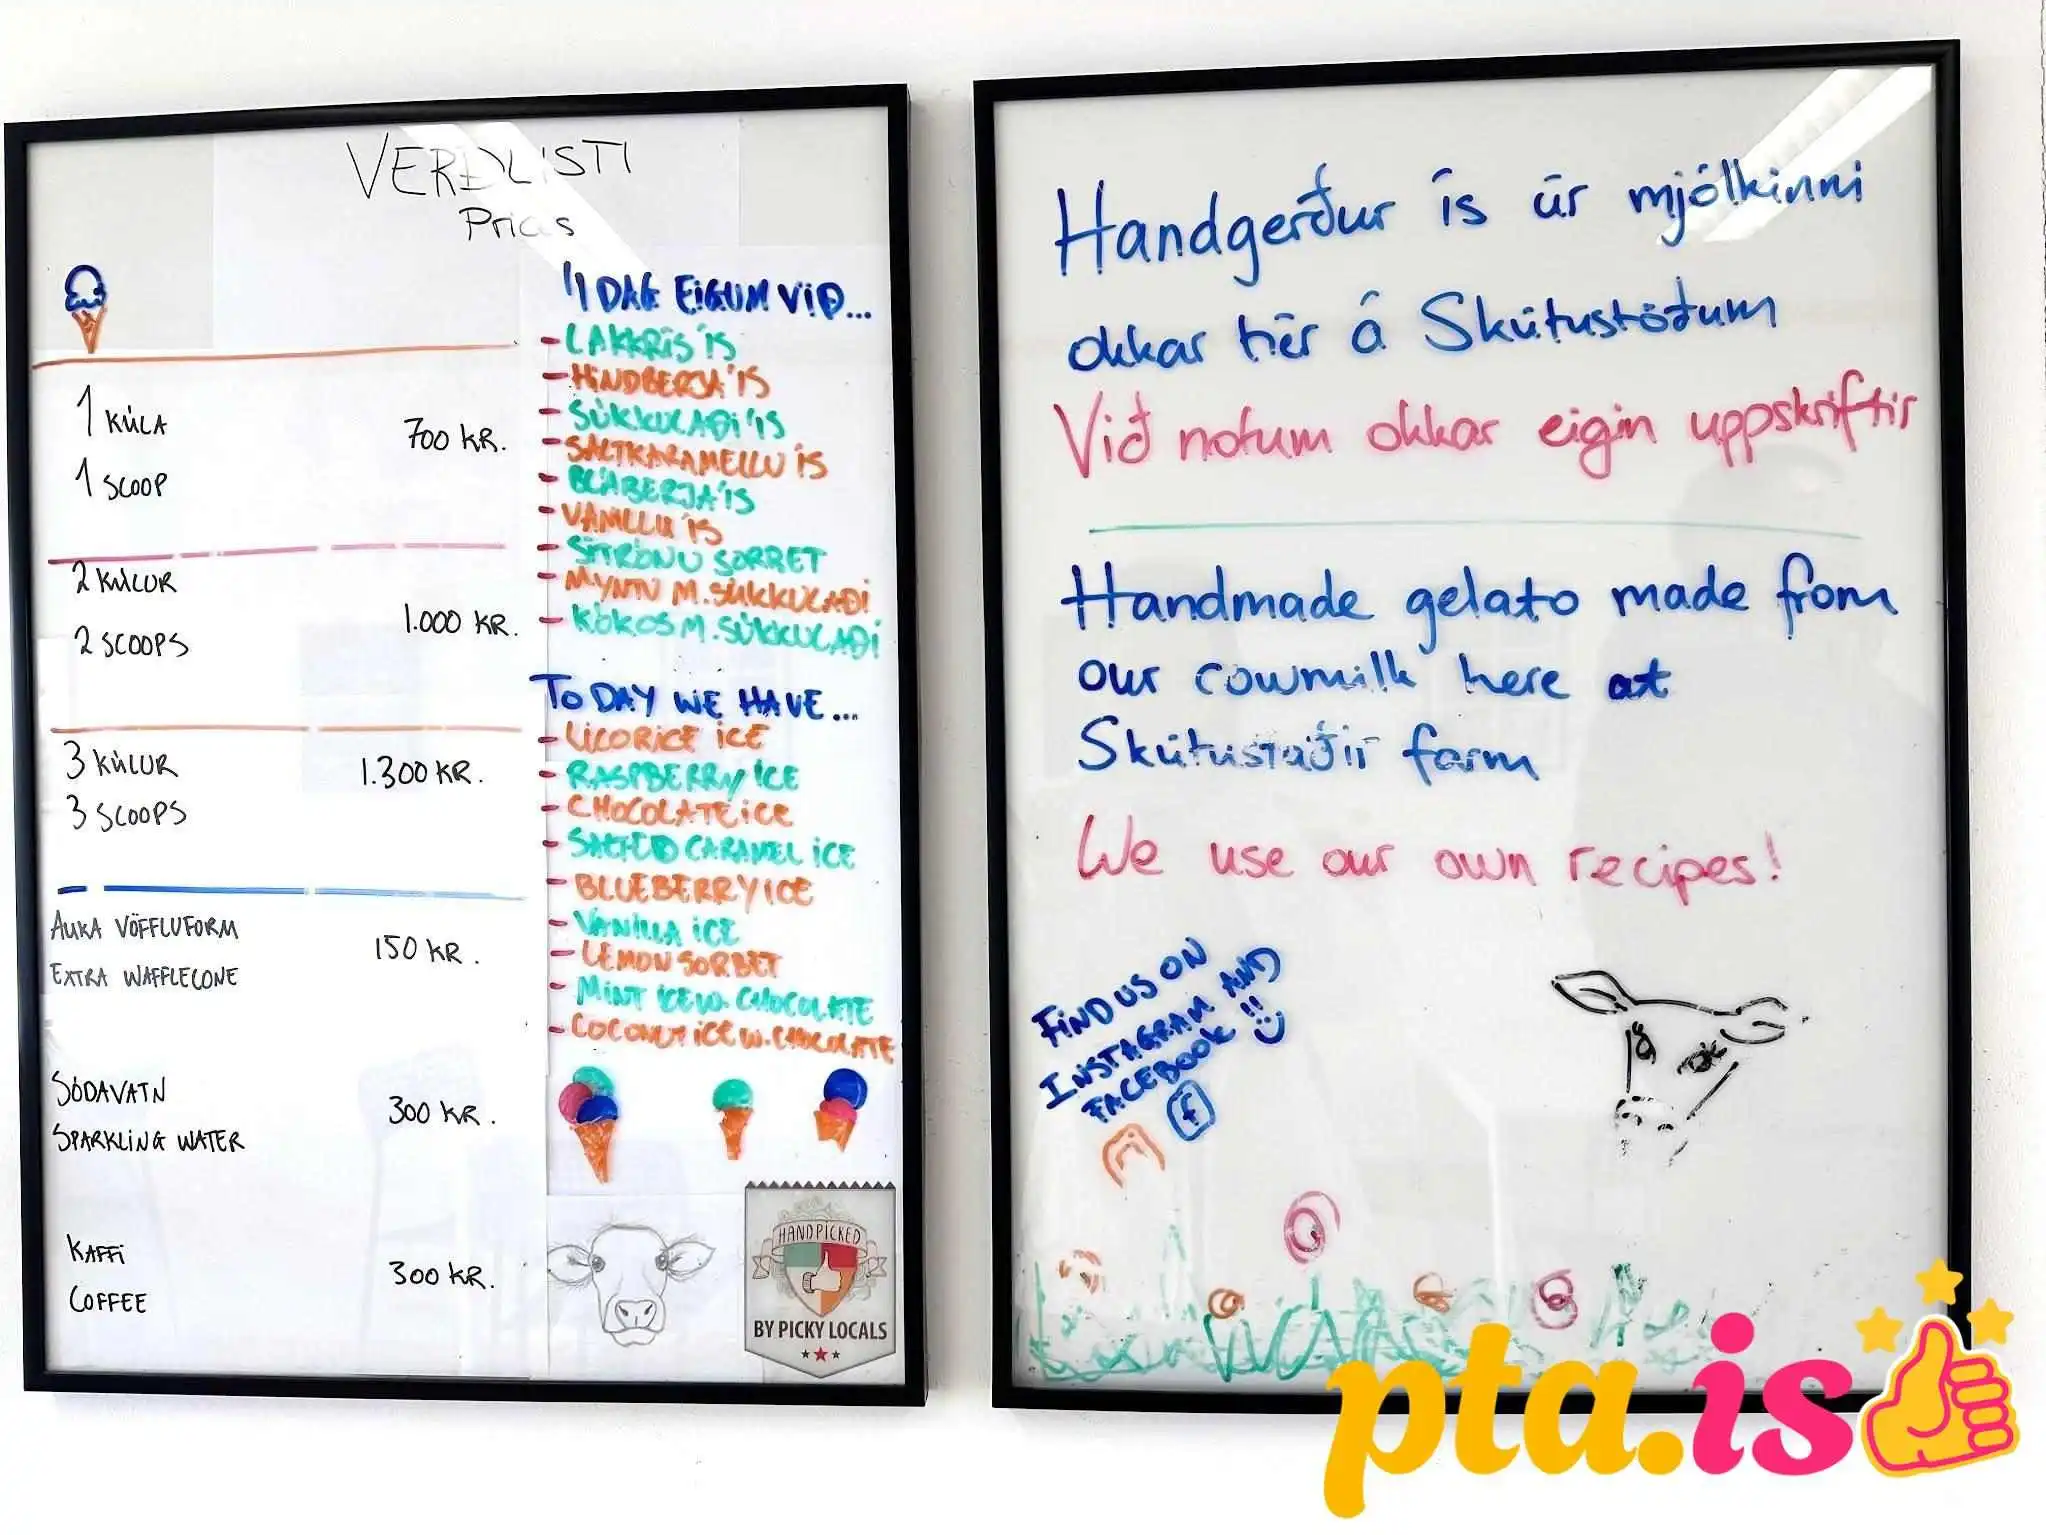 VERÐLISTI
Prices
1 KÚLA
700 KR.
1 SCOOP
2 KÚLUR
1.000 KR.
2 SCOOPS
3 KÚLUR
1.300 KR.
3 SCOOPS
AUKA VÖFFLUFORM
150 KR.
EXTRA WAFFLECONE
SÓDAVATN
300 KR.
SPARKLING WATER
KAFFI
300 KR.
COFFEE
Í DAG EIGUM VIÐ...
- LAKKRÍS ÍS
- HINDBERJA ÍS
- SÚKKULAÐI ÍS
- SALTKARAMELLU ÍS
- BLÁBERJA ÍS
- VANILLU ÍS
- SÍTRÓNU SORBET
- MYNTU M. SÚKKULAÐI
- KÓKOS M. SÚKKULAÐI
TODAY WE HAVE...
- LICORICE ICE
- RASPBERRY ICE
- CHOCOLATE ICE
- SALTED CARAMEL ICE
- BLUEBERRY ICE
- VANILLA ICE
- LEMON SORBET
- MINT ICE W. CHOCOLATE
- COCONUT ICE W. CHOCOLATE
HANDPICKED
BY PICKY LOCALS
Handgerður ís úr mjólkinni
okkar hér á Skútustöðum
Við notum okkar eigin uppskriftir
Handmade gelato made from
our cowmilk here at
Skútustaðir farm
We use our own recipes!
FIND US ON
INSTAGRAM AND
FACEBOOK !!
f
pta.is